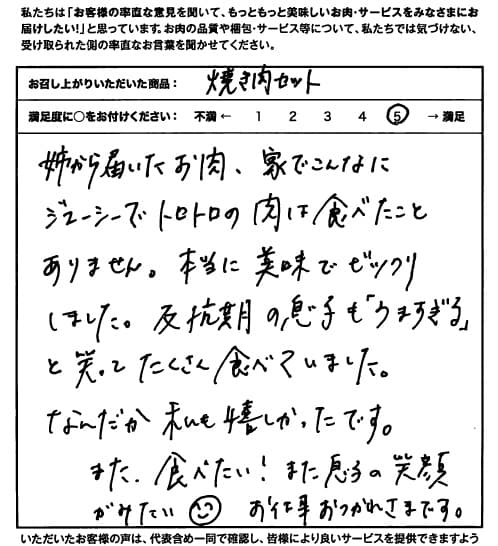 私たちは「お客様の率直な意見を聞いて、もっともっと美味しいお肉・サービスをみなさまにお
届けしたい!」と思っています。お肉の品質や梱包・サービス等について、私たちでは気づけない、
受け取られた側の率直なお言葉を聞かせてください。
お召し上がりいただいた商品: 焼き肉セット
満足度に○をお付けください: 不満 ← 1 2 3 4 5 → 満足
姉から届いたお肉、家でこんなに
ジューシーでトロトロの肉は食べたこと
ありません。本当に美味でビックリ
しました。反抗期の息子も「うますぎる」
と笑ってたくさん食べていました。
なんだか私も嬉しかったです。
また、食べたい!また息子の笑顔
がみたい お仕事おつかれさまです。
いただいたお客様の声は、代表含め一同で確認し、皆様により良いサービスを提供できますよう